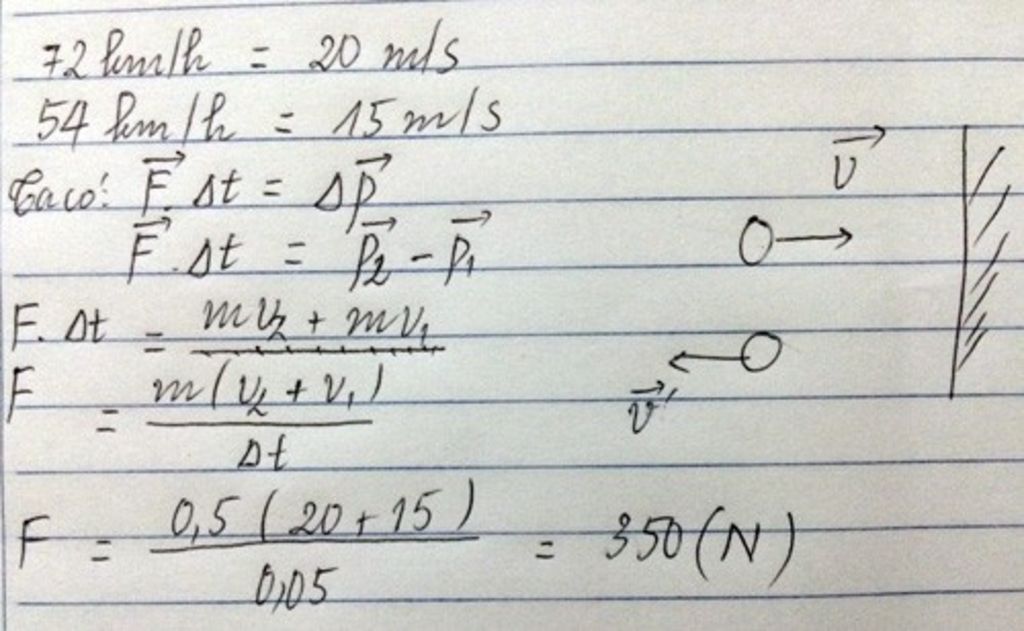 72 km/h = 20 m/s
54 km/h = 15 m/s
Ta có: F⃗. Δt = Δp⃗
F⃗. Δt = p⃗₂ - p⃗₁
F. Δt = mv₂ + mv₁
F = m(v₂ + v₁) / Δt
F = 0,5 (20 + 15) / 0,05 = 350 (N)
v⃗
v⃗'